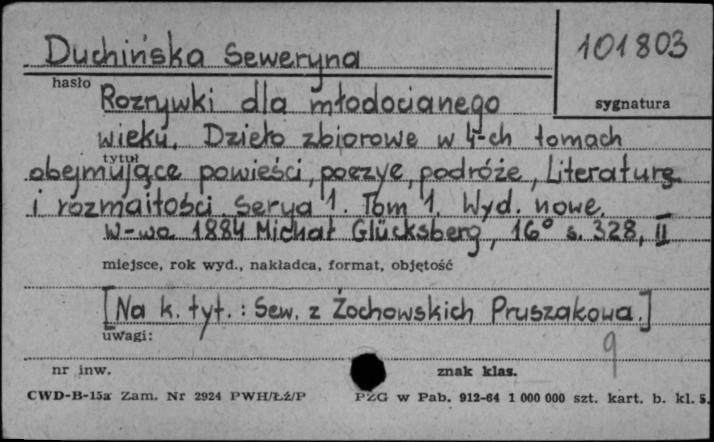 Duchińska Seweryna
101803
hasło
sygnatura
Rozrywki dla młodocianego
wieku. Dzieło zbiorowe w 4-ch tomach
tytuł
obejmujące powieści, poezye, podróże, Literaturę
i rozmaitości. Serya 1. Tom 1. Wyd. nowe.
W-wa 1884 Michał Glücksberg, 16° s. 328, II
miejsce, rok wyd., nakładca, format, objętość
[Na k. tyt.: Sew. z Żochowskich Pruszakowa.]
uwagi:
9
nr inw.
znak klas.
CWD-B-15a Zam. Nr 2924 PWH/Łź/P
PZG w Pab. 912-64 1 000 000 szt. kart. b. kl. 5.